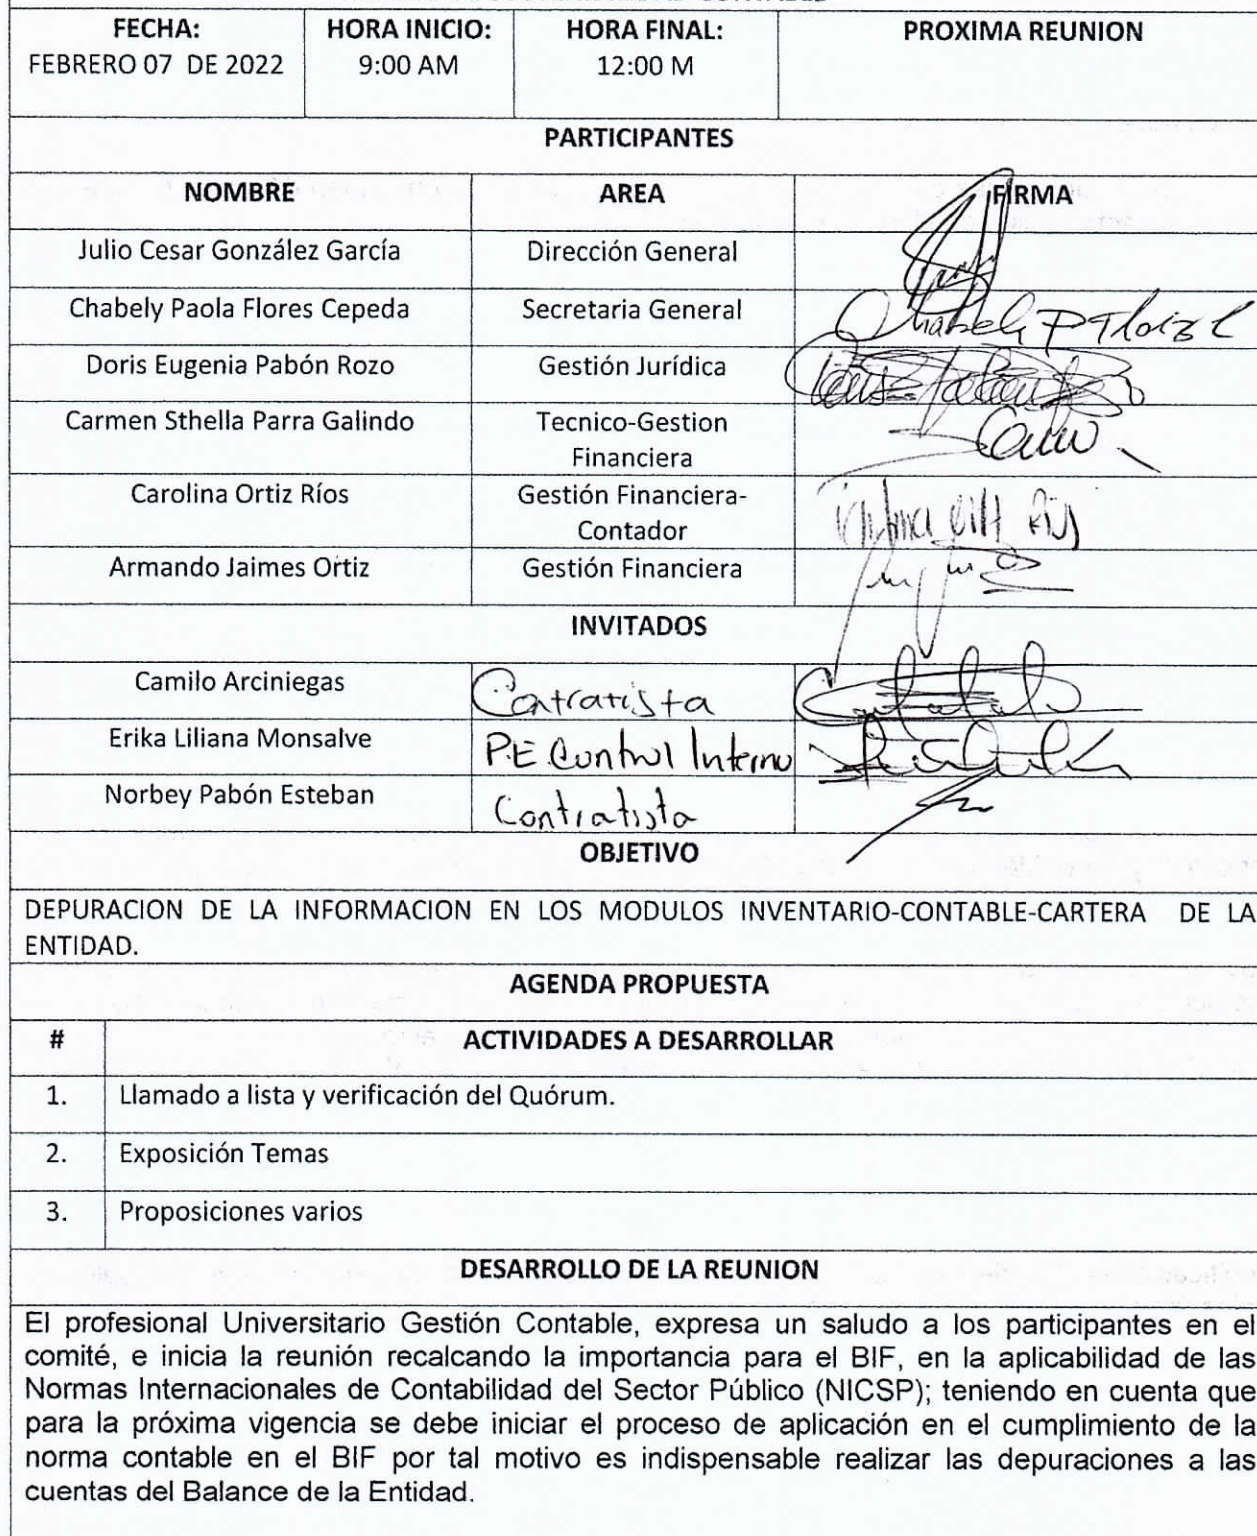 FECHA: HORA INICIO: HORA FINAL: PROXIMA REUNION
FEBRERO 07 DE 2022 9:00 AM 12:00 M
PARTICIPANTES
NOMBRE AREA FIRMA
Julio Cesar González García Dirección General
Chabely Paola Flores Cepeda Secretaria General
Chabely P
Doris Eugenia Pabón Rozo Gestión Jurídica
Carmen Sthella Parra Galindo Tecnico-Gestion
Financiera
Carolina Ortiz Ríos Gestión Financiera-
Contador
Armando Jaimes Ortiz Gestión Financiera
INVITADOS
Camilo Arciniegas Contratista
Erika Liliana Monsalve P.E Control Interno
Norbey Pabón Esteban Contratista
OBJETIVO
DEPURACION DE LA INFORMACION EN LOS MODULOS INVENTARIO-CONTABLE-CARTERA DE LA
ENTIDAD.
AGENDA PROPUESTA
# ACTIVIDADES A DESARROLLAR
1. Llamado a lista y verificación del Quórum.
2. Exposición Temas
3. Proposiciones varios
DESARROLLO DE LA REUNION
El profesional Universitario Gestión Contable, expresa un saludo a los participantes en el
comité, e inicia la reunión recalcando la importancia para el BIF, en la aplicabilidad de las
Normas Internacionales de Contabilidad del Sector Público (NICSP); teniendo en cuenta que
para la próxima vigencia se debe iniciar el proceso de aplicación en el cumplimiento de la
norma contable en el BIF por tal motivo es indispensable realizar las depuraciones a las
cuentas del Balance de la Entidad.